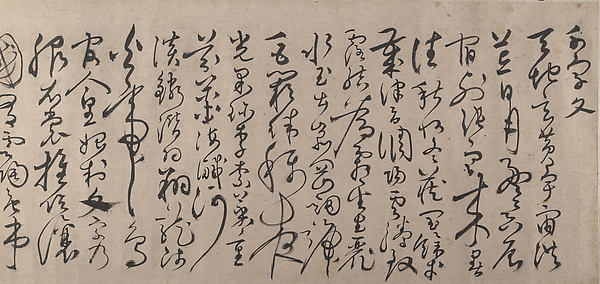 千字文
天地玄黃宇宙洪
荒日月盈昃辰
宿列張寒来暑
往秋收冬藏閏餘成
歲律呂調陽雲騰致
雨露結為霜金生麗
水玉出崑岡劍號
巨闕珠稱夜
光果珍李柰菜重
芥薑海鹹河
淡鱗潛羽翔龍師
火帝鳥
官人皇始制文字乃
服衣裳推位讓
國有虞陶唐弔